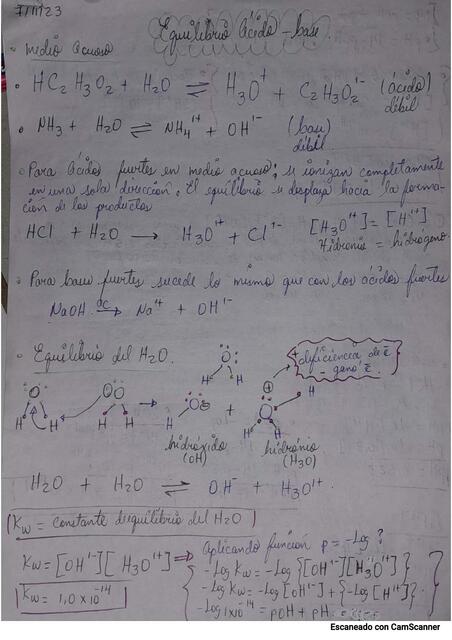 7/11/23
Equilibrio ácido-base.
• medio acuoso
• HC₂H₃O₂ + H₂O ⇌ H₃O⁺ + C₂H₃O₂¹⁻ (ácido) débil
• NH₃ + H₂O ⇌ NH₄¹⁺ + OH¹⁻ (base) débil
• Para ácidos fuertes en medio acuoso; se ionizan completamente
en una sola dirección. El equilibrio se desplaza hacia la forma-
ción de los productos
HCl + H₂O → H₃O¹⁺ + Cl¹⁻ [H₃O¹⁺] = [H¹⁺]
Hidronio = hidrógeno.
• Para base fuertes sucede lo mismo que con los ácidos fuertes
NaOH ac→ Na¹⁺ + OH¹⁻
• Equilibrio del H₂O.
+ deficiencia de e⁻
- ganó e⁻.
H O H H O H → H O ⊖ + H O H H ⊕ H O H
hidróxido hidrónio
(OH) (H₃O)
H₂O + H₂O ⇌ OH⁻ + H₃O¹⁺
Kw = constante de equilibrio del H₂O
Kw = [OH¹⁻][H₃O¹⁺] ⇒ Aplicando función p = -Log ?
-Log Kw = -Log {[OH¹⁻][H₃O¹⁺]}
Kw = 1,0 x 10⁻¹⁴
-Log Kw = -Log [OH¹⁻] + {-Log [H¹⁺]}
-Log 1x10⁻¹⁴ = pOH + pH
Escaneado con CamScanner